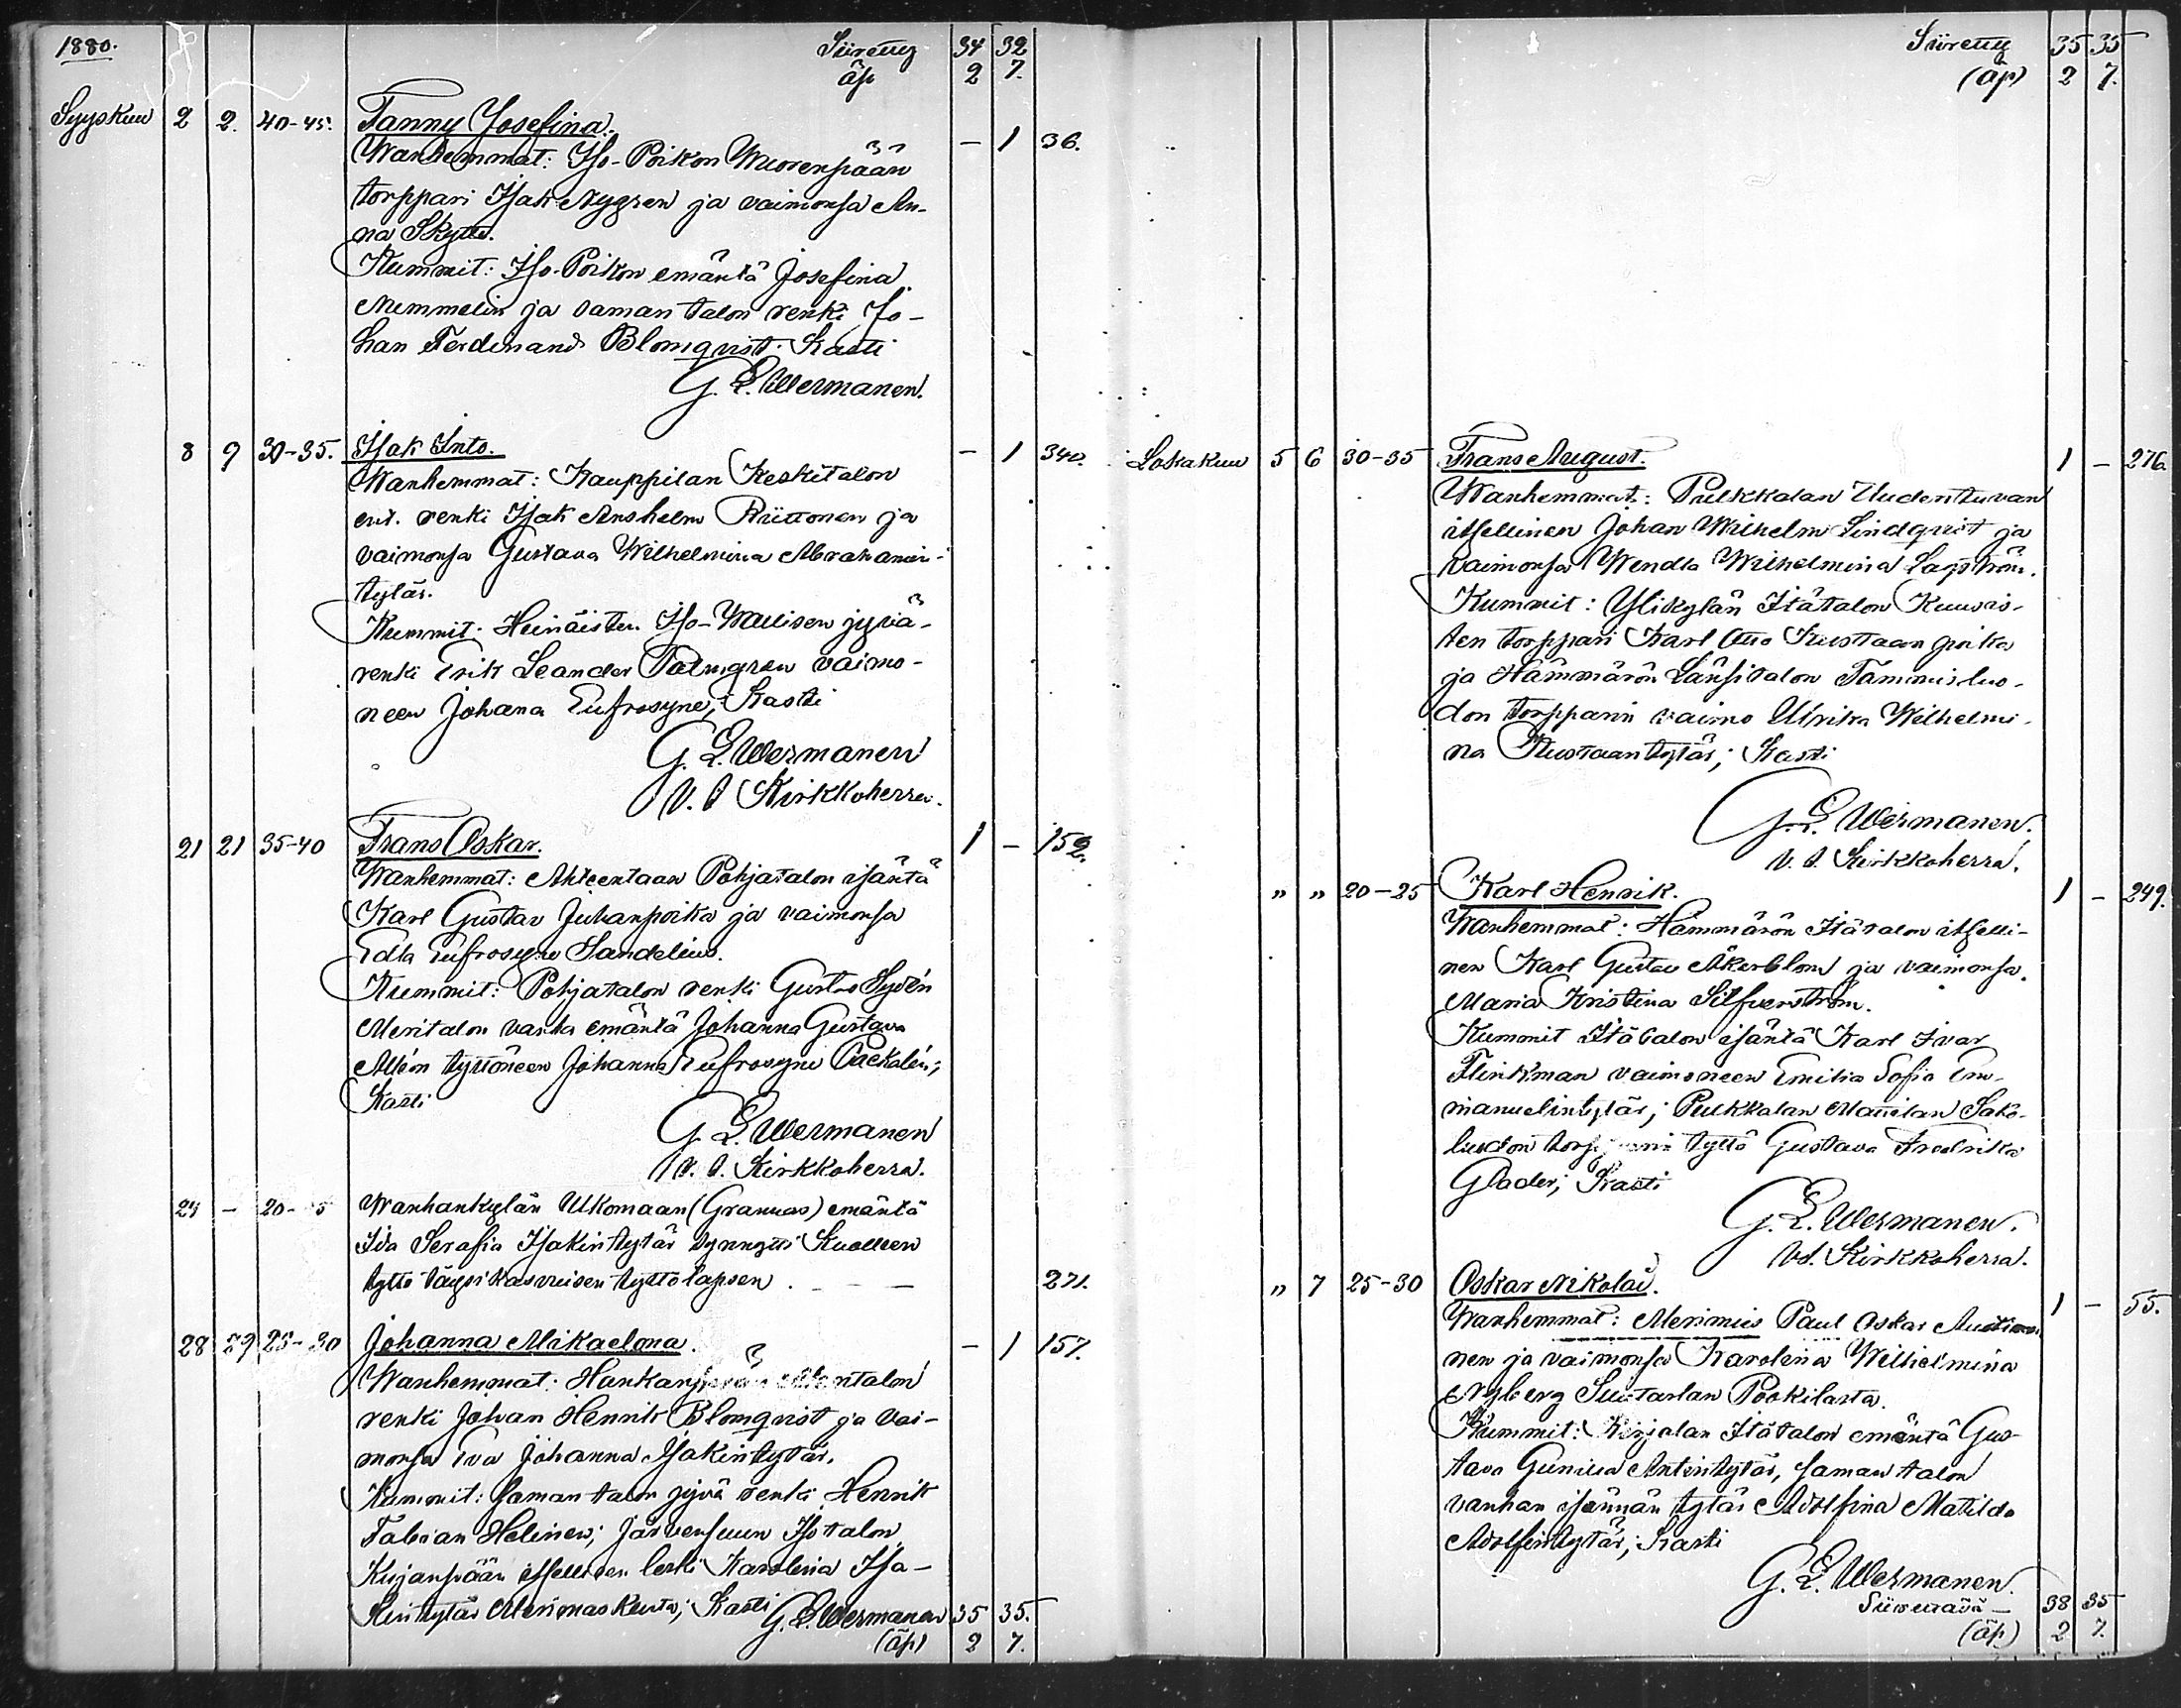 1880. Siiretty 34 32
äp 2 7.
Syyskuu 2 2. 40-45. Fanny Josefina.
Wanhemmat: Iso-Poikon Wuorenpään — 1 36.
torppari Isak Nygren ja vaimonsa An-
na Skyttä.
Kummit: Iso-Poikon emäntä Josefina
Nummelin ja saman talon renki Jo-
han Ferdinand Blomqvist. Kasti
G. E. Wermanen.
8 9 30-35. Isak Into. — 1 340.
Wanhemmat: Kauppilan Keskitalon
ent. renki Isak Anshelm Riittonen ja
vaimonsa Gustava Wilhelmina Abrahamin-
tytär.
Kummit: Heinäisten Iso-Wallisen jyvä-
renki Erik Leander Palmgren vaimo-
neen Johana Eufrosyne; Kasti
G. E. Wermanen
V. t. Kirkkoherra.
21 21 35-40 Frans Oskar. 1 — 152.
Wanhemmat: Ahteentaan Pohjatalon isäntä
Karl Gustav Juhanpoika ja vaimonsa
Edla Eufrosyne Sandelius.
Kummit: Pohjatalon renki Gustav Sydén
Meritalon vanha emäntä Johanna Gustava
tyttöneen Johanna Eufrosyne
Kasti
G. E. Wermanen
V. t. Kirkkoherra.
24 — 20- 5 Wanhankylän Ukomaan (Grannas) emäntä
Ida Serafia Isakintytär synnytti Kuolleen
tyttö täysikasvuisen tyttölapsen. — — 271.
28 29 25-30 Johanna Mikaelina. — 1 157.
Wanhemmat:
renki Johan Henrik Blomqvist ja vai-
monsa Eva Johanna Isakintytär.
Kummit: Saman talon jyvä renki Henrik
Fabian Helinen; Järvensuun Isotalon
Kujanpään itsellisen leski Karolina Isa-
kintytär Merimaskusta; Kasti G. E. Wermanen 35 35.
(äp) 2 7.
Siiretty 35 35
(äp) 2 7.
Lokakuu 5 6 30-35 Frans August. 1 — 276.
Wanhemmat: Pulkkalan Uudentuvan
itsellinen Johan Wilhelm Lindqvist ja
vaimonsa Wendla Wilhelmina Lagström.
Kummit: Ylikylän Itätalon Kuuvis-
ten torppari Karl Otto Kustaan poika
ja Hämmärön Länsitalon Tammisluo-
don torpparin vaimo Ulrika Wilhelmi-
na Kustaantytär; Kasti
G. E. Wermanen.
V. t. Kirkkoherra.
" " 20-25 Karl Henrik. 1 — 249.
Wanhemmat: Hämmärön Itätalon itselli-
nen Karl Gustav Åkerblom ja vaimonsa
Maria Kristina Silfverström.
Kummit Itätalon isäntä Karl Ivar
Flinkman vaimoneen Emilia Sofia Em-
manuelintytär; Pulkkalan Mattilan Salo-
luodon torpparin tyttö Gustava Fredrika
Glader; Kasti
G. E. Wermanen.
V.t. Kirkkoherra.
" 7 25-30 Oskar Nikolai. 1 — 55.
Wanhemmat: Merimies Paul Oskar
nen ja vaimonsa Karolina Wilhelmina
Nyberg Suutarlan Pookilasta.
Kummit: Kirjalan Itätalon emäntä Gus-
tava Gunilla Antintytär, saman talon
vanhan isännän tytär Adolfina Matilda
Adolfintytär; Kasti
G. E. Wermanen.
Siirrettävä — 38 35
(äp) 2 7.